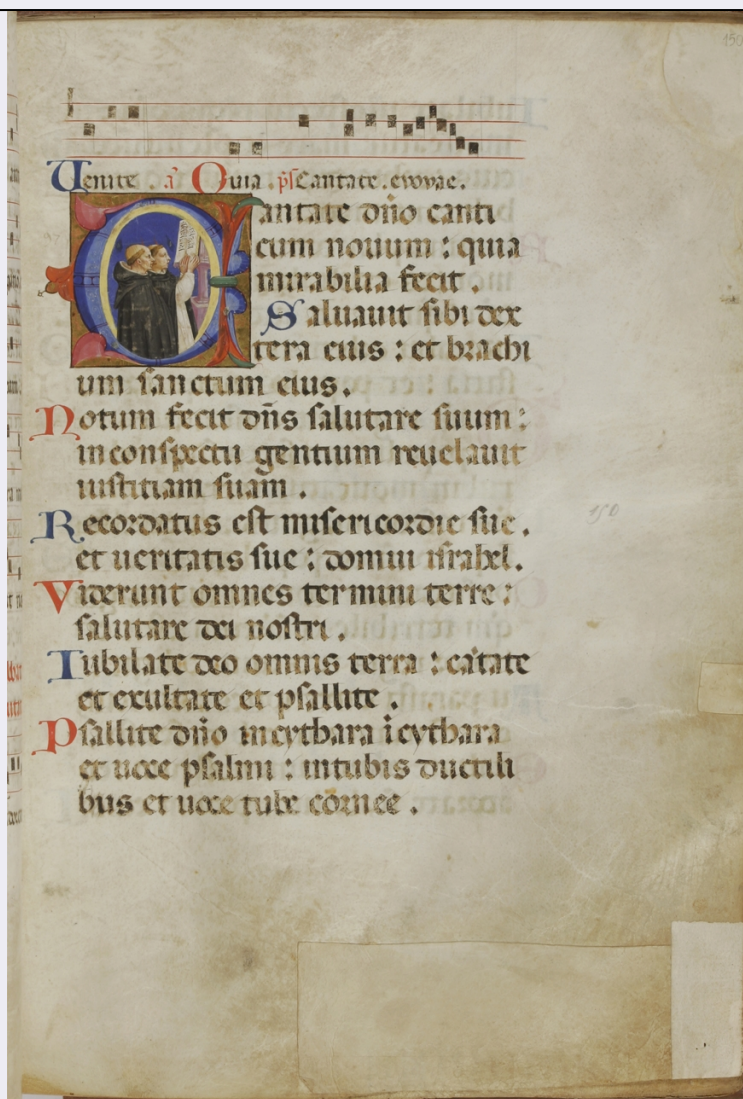 150
Venite . a Quia ps Cantate . evovae .
Cantate dño canti
cum nouum : quia
mirabilia fecit .
Saluauit sibi dex
tera eius : et brachi
um sanctum eius .
Notum fecit dñs salutare suum :
in conspectu gentium reuelauit
iustitiam suam .
Recordatus est misericordie sue .
et ueritatis sue : domui israhel .
Viderunt omnes termini terre :
salutare dei nostri .
Iubilate deo omnis terra : cãtate
et exultate et psallite .
Psallite dño in cythara ĩ cythara
et uoce psalmi : in tubis ductili
bus et uoce tube cornee .
150